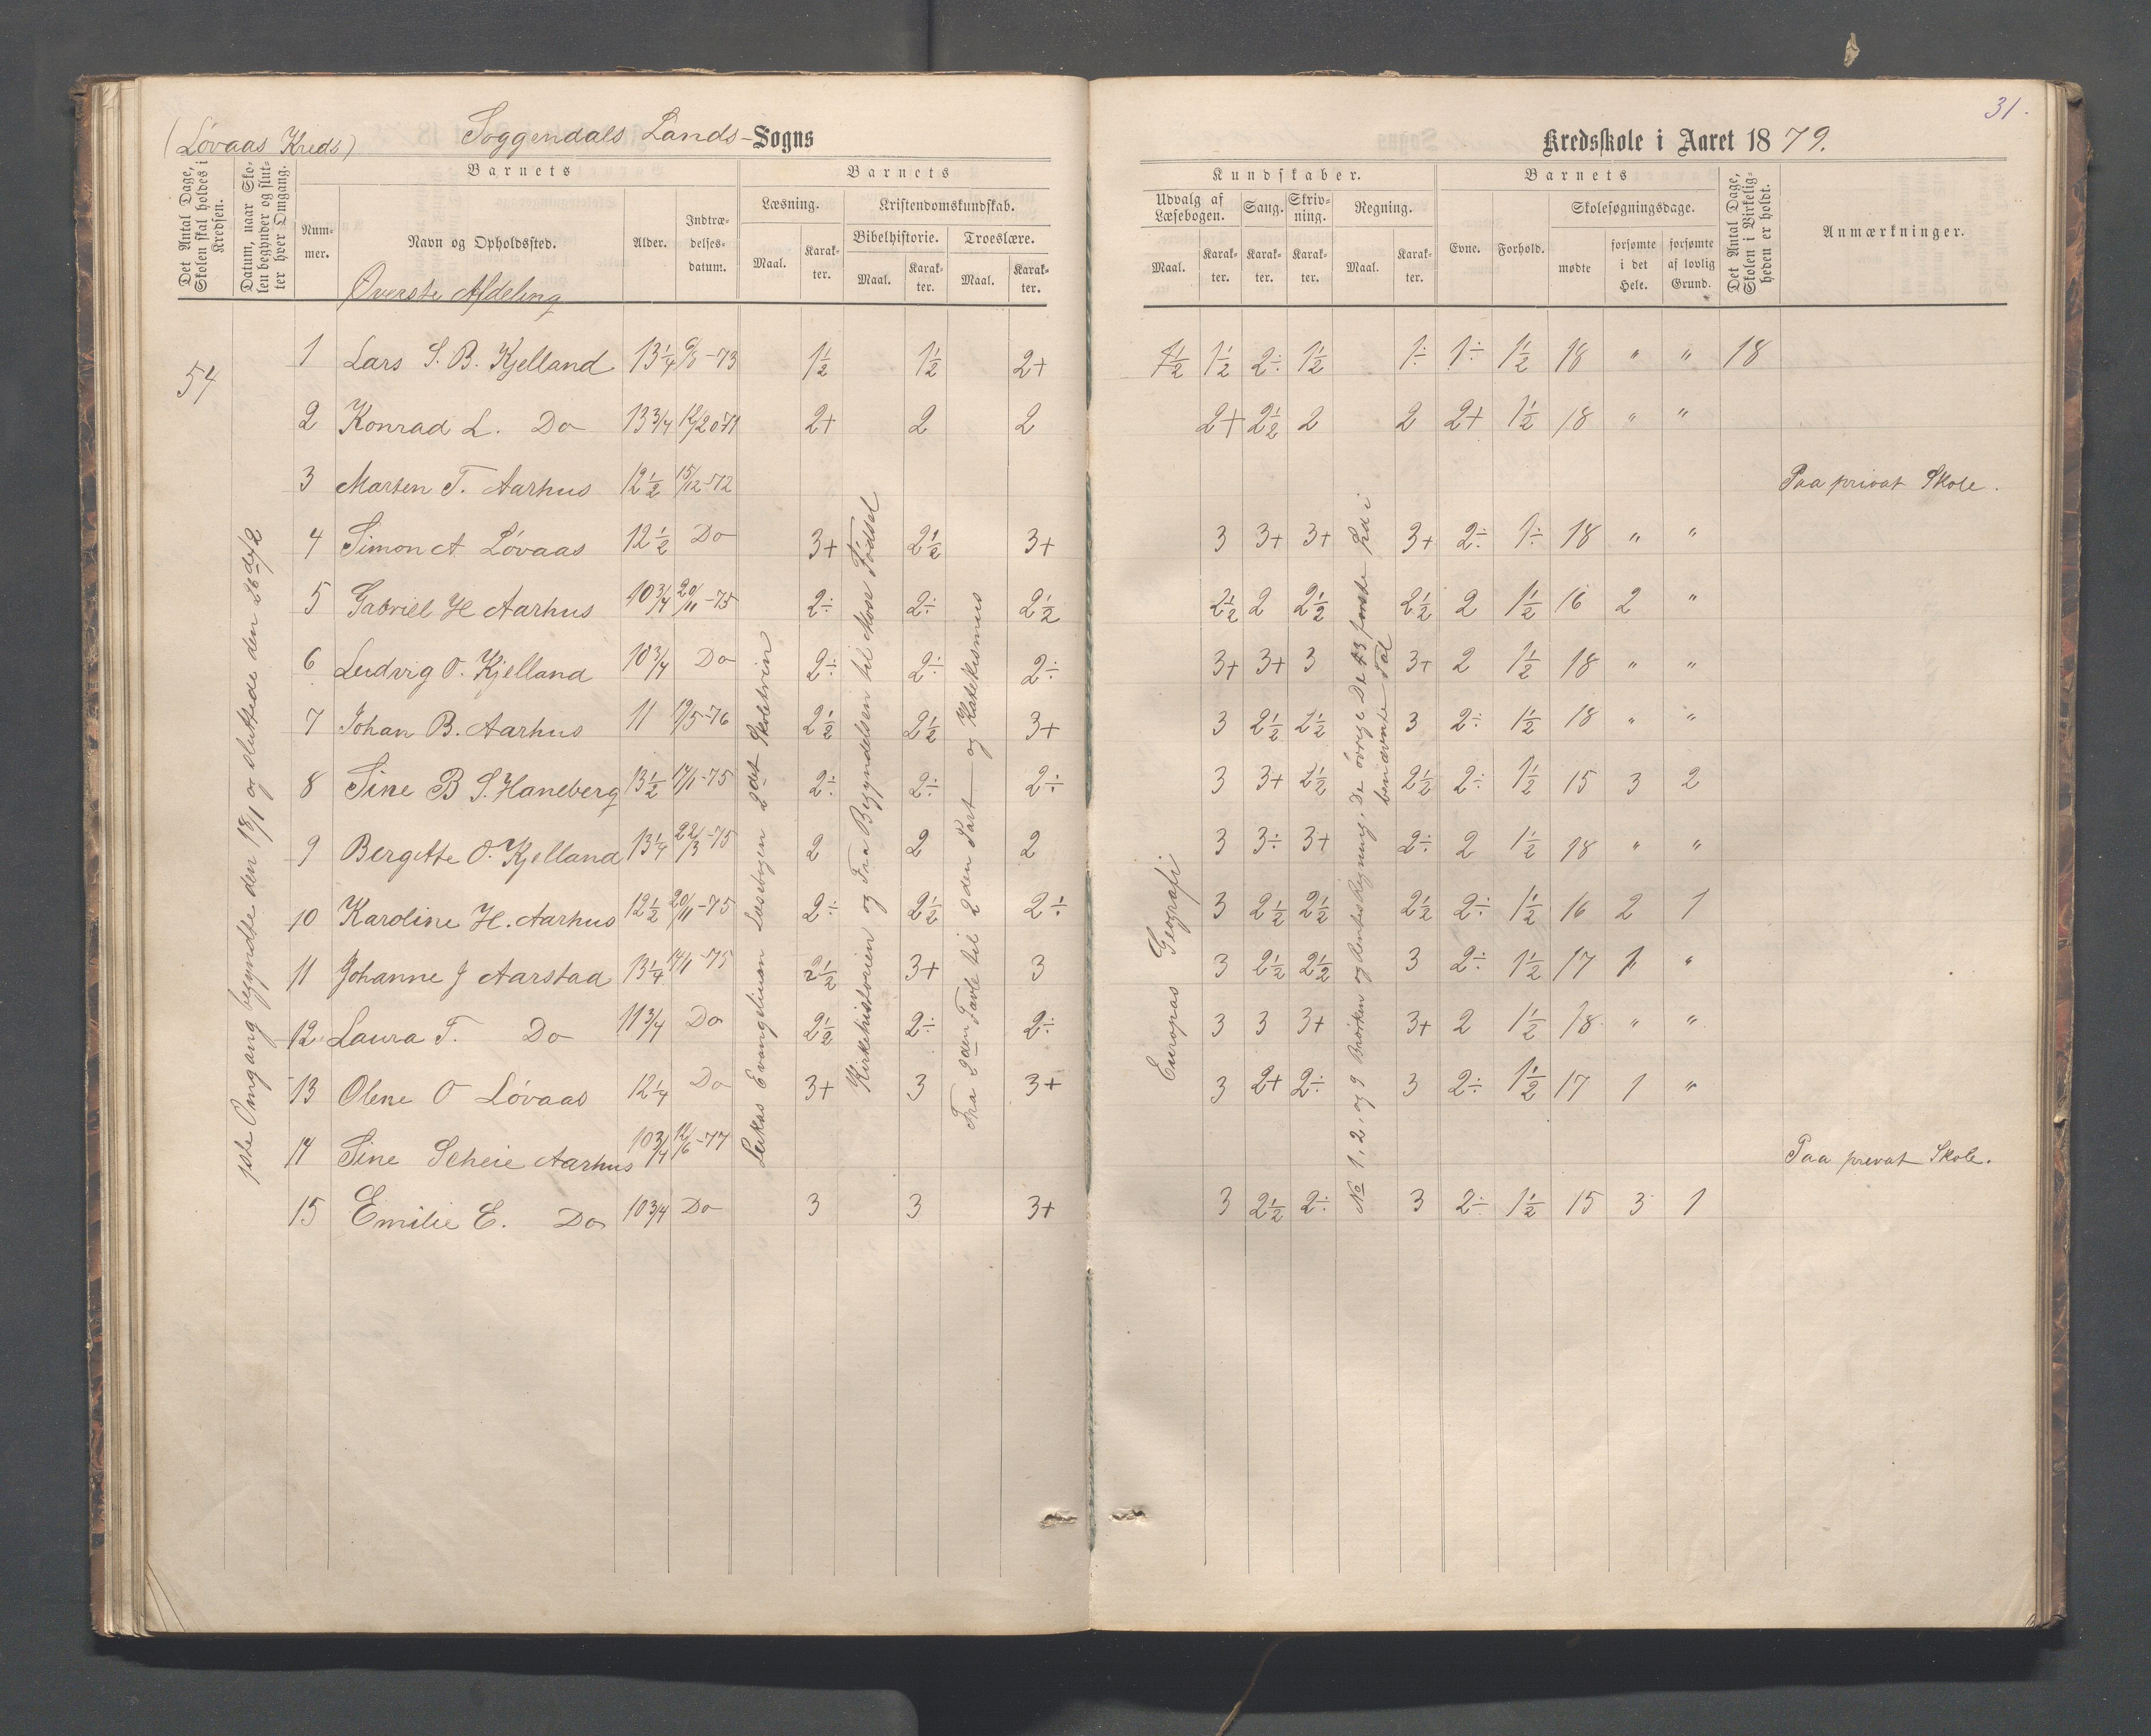 31.
(Løvaas Kreds)
Soggendals Lands-Sogns
Kredsskole i Aaret 1879.
Det Antal Dage, Skolen skal holdes i Kredsen.
Datum, naar Skolen begynder og slutter hver Omgang.
Barnets
Nummer.
Navn og Opholdssted.
Alder.
Indtrædelsesdatum.
Barnets
Læsning.
Maal.
Karakter.
Kristendomskundskab.
Bibelhistorie.
Maal.
Karakter.
Troeslære.
Maal.
Karakter.
Kundskaber.
Udvalg af Læsebogen.
Maal.
Karakter.
Sang.
Karakter.
Skrivning.
Karakter.
Regning.
Maal.
Karakter.
Barnets
Evne.
Forhold.
Skolesøgningsdage.
mødte
forsømte i det Hele.
forsømte af lovlig Grund.
Det Antal Dage, Skolen i Virkeligheden er holdt.
Anmærkninger.
Øverste Afdeling
54
1 Lars S. B. Kjelland 13 1/4 6/8-73 1 1/2 1 1/2 2+ 1 1/2 1 1/2 2÷ 1 1/2 1÷ 1÷ 1 1/2 18 " " 18
2 Konrad L. Do 13 3/4 2+ 2 2 2+ 2 1/2 2 2 2+ 1 1/2 18 " "
3 Marten T. Aarhus 12 1/2 15/12-72 Paa privat Skole.
4 Simon A Løvaas 12 1/2 Do 3+ 2 1/2 3+ 3 3+ 3+ 3+ 2÷ 1÷ 18 " "
5 Gabriel H Aarhus 10 3/4 20/11-75 2÷ 2÷ 2 1/2 2 1/2 2 2 1/2 2 1/2 2 1 1/2 16 2 "
6 Ludvig O. Kjelland 10 3/4 Do 2÷ 2÷ 2÷ 3+ 3+ 3 3+ 2 1 1/2 18 " "
7 Johan B. Aarhus 11 19/5-76 2 1/2 2 1/2 3+ 3 2 1/2 2 1/2 3 2÷ 1 1/2 18 " "
8 Sine B S. Haneberg 13 1/2 14/1-75 2÷ 2÷ 2÷ 3 3+ 2 1/2 2 1/2 2÷ 1 1/2 15 3 2
9 Bergitte O. Kjelland 13 1/4 22/3-75 2 2 2 3 3÷ 3+ 2÷ 2 1 1/2 18 " "
10 Karoline H. Aarhus 12 1/2 20/11-75 2÷ 2 1/2 2÷ 3 2 1/2 2 1/2 2 1/2 2÷ 1 1/2 16 2 1
11 Johanne J Aarstad 13 1/4 14/1-75 2 1/2 3+ 3 3 2 1/2 2 1/2 3 2÷ 1 1/2 17 1 "
12 Laura T. Do 11 3/4 Do 2 1/2 2÷ 2÷ 3 3 3+ 3+ 2 1 1/2 18 " "
13 Olene O Løvaas 12 1/4 Do 3+ 3 3+ 3 2+ 2÷ 3 2÷ 1 1/2 17 1 "
14 Sine Scheie Aarhus 10 3/4 12/6-77 Paa prevat Skole.
15 Emilie E. Do 10 3/4 Do 3 3 3+ 3 2 1/2 2÷ 3 2÷ 1 1/2 15 3 1
1ste Omgang begyndte den og sluttede den
Lukas Evangelium Læsebogen 2det Skoletrin
Kirkehistorien og Fra Begyndelsen til Mose Fødsel
Fra 2den Tavle til 2den Part og Katekismus
Europas Geografi
No 1, 2, og 9 Brøker og Rentes Regning. De øvrige De første i
benævnte Tal